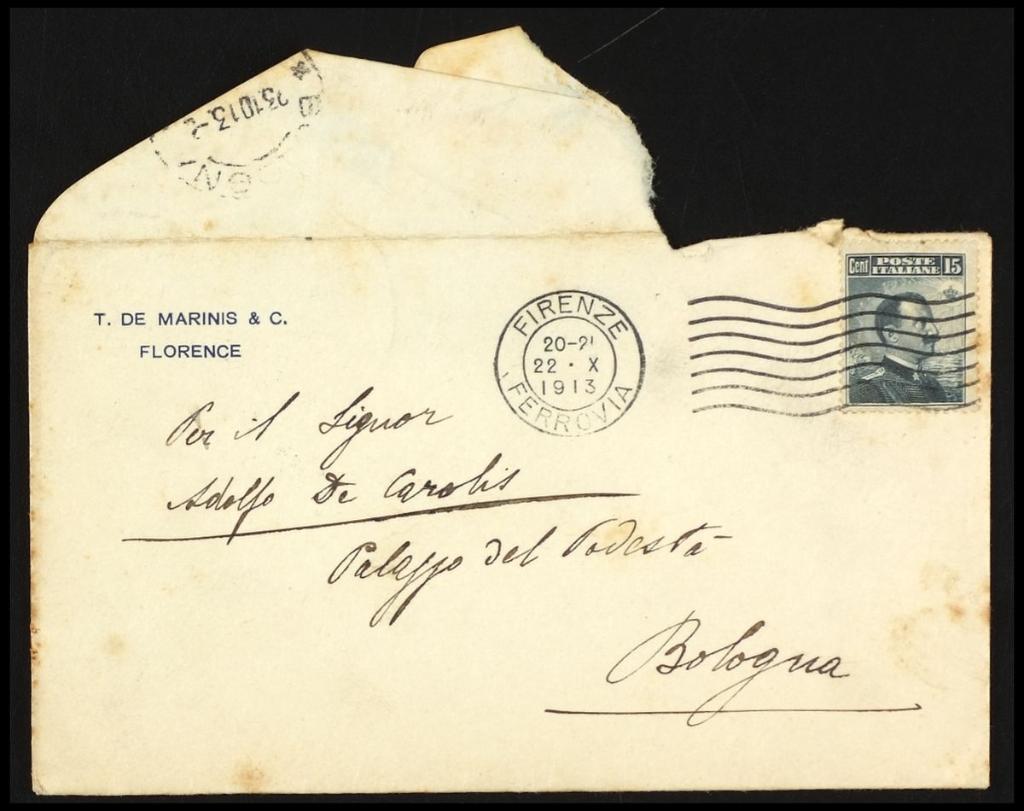 23.10.13.-2
T. DE MARINIS & C.
FLORENCE
FIRENZE
20-21
22 · X
1913
FERROVIA
Cent POSTE ITALIANE 15
Per il Signor
Adolfo De Carolis
Palazzo del Podestà
Bologna